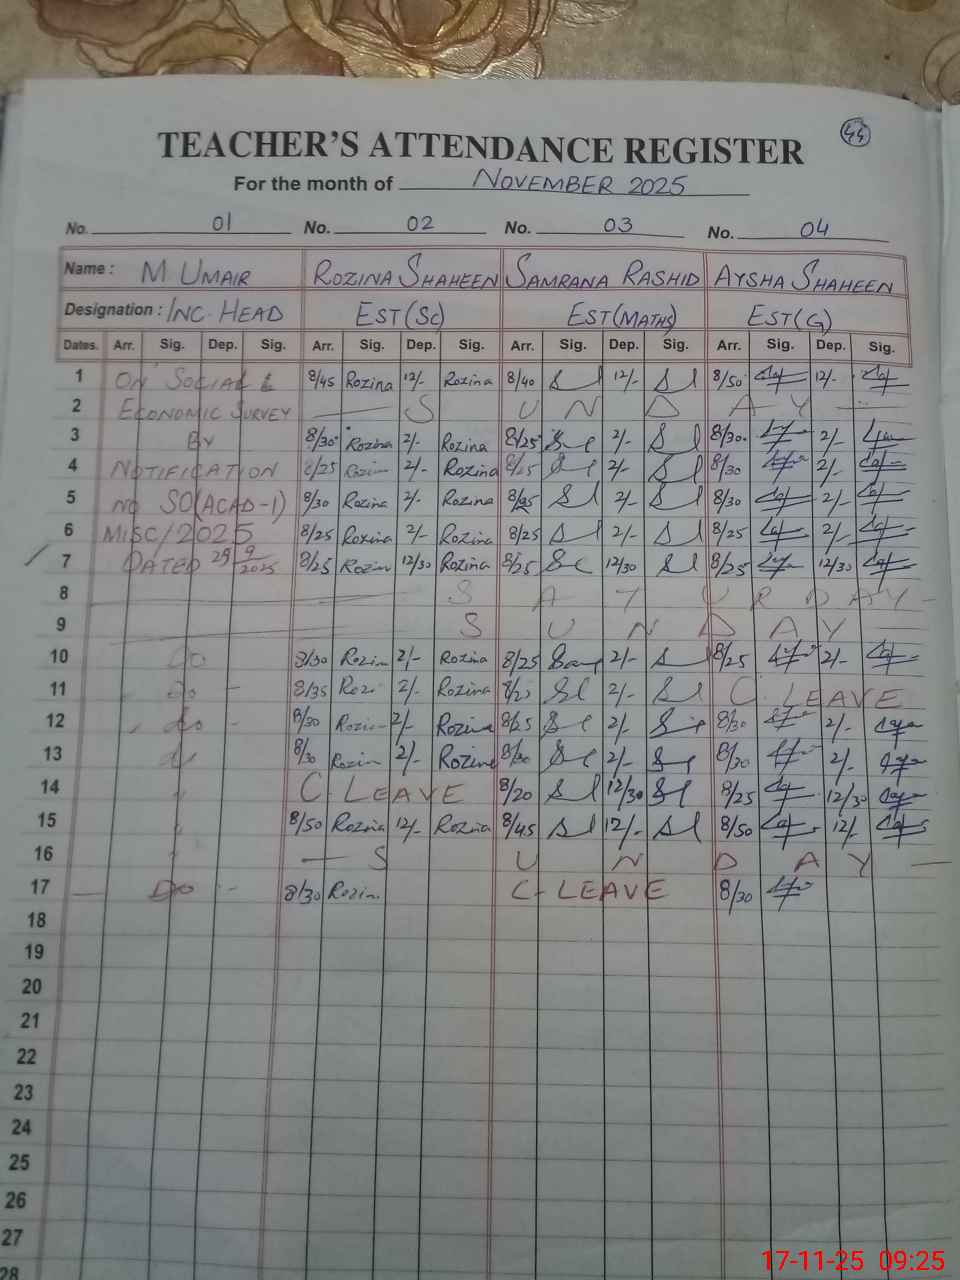 44
TEACHER'S ATTENDANCE REGISTER
For the month of NOVEMBER 2025
No. 01 No. 02 No. 03 No. 04
Name : M UMAIR ROZINA SHAHEEN SAMRANA RASHID AYSHA SHAHEEN
Designation : INC. HEAD EST(SC) EST(MATHS) EST(G)
Dates. Arr. Sig. Dep. Sig. Arr. Sig. Dep. Sig. Arr. Sig. Dep. Sig. Arr. Sig. Dep. Sig.
1 ON SOCIAL & 8/45 Rozina 12/- Rozina 8/40 12/- 8/50 12/-
2 ECONOMIC SURVEY — S U N D A Y —
3 BY 8/30 Rozina 2/- Rozina 8/25 2/- 8/30 2/-
4 NOTIFICATION 8/25 Rozin 2/- Rozina 8/25 2/- 8/30 2/-
5 NO SO(ACAD-1) 8/30 Rozina 2/- Rozina 2/- 8/30 2/-
6 MISC/2025 8/25 Rozina 2/- Rozina 8/25 2/- 8/25 2/-
7 DATED 29/9/2025 8/25 Rozin 12/30 Rozina 8/25 12/30 8/25 12/30
8 — S A T U R D A Y -
9 — S U N D A Y —
10 Do 8/30 Rozin 2/- Rozina 8/25 2/- 8/25 2/-
11 do - 8/35 Rozi 2/- Rozina 8/25 2/- C. LEAVE
12 do - 8/30 Rozin 2/- Rozina 8/25 2/- 8/30 2/-
13 8/30 Rozin 2/- Rozina 8/30 2/- 8/30 2/-
14 " C. LEAVE 8/20 12/30 8/25 12/30
15 " 8/50 Rozina 12/- Rozina 8/45 12/- 8/50 12/-
16 " — S U N D A Y —
17 — Do - 8/30 Rozin. C. LEAVE 8/30
18
19
20
21
22
23
24
25
26
27
28
17-11-25 09:25